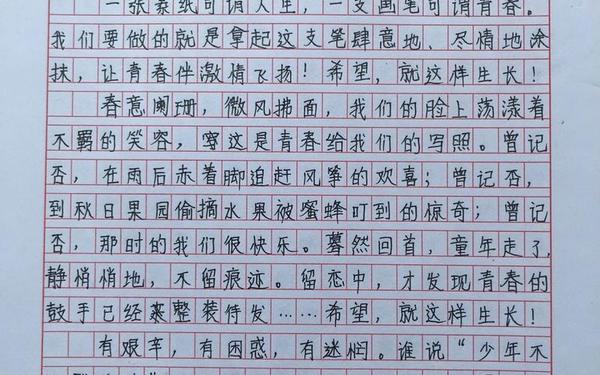 一张素纸可谓人生，一支画笔可谓青春。
我们要做的就是拿起这支笔肆意地、尽情地涂
抹，让青春伴激情飞扬！希望，就这样生长！
春意阑珊，微风拂面，我们的脸上荡漾着
不羁的笑容，这是青春给我们的写照。曾记
否，在雨后赤着脚追赶风筝的欢喜；曾记否，
到秋日果园偷摘水果被蜜蜂叮到的惊奇；曾记
否，那时的我们很快乐。蓦然回首，童年走了，
静悄悄地，不留痕迹。留恋中，才发现青春的
鼓手已经整装待发……希望，就这样生长！
有艰辛，有困惑，有迷惘。谁说“少年不